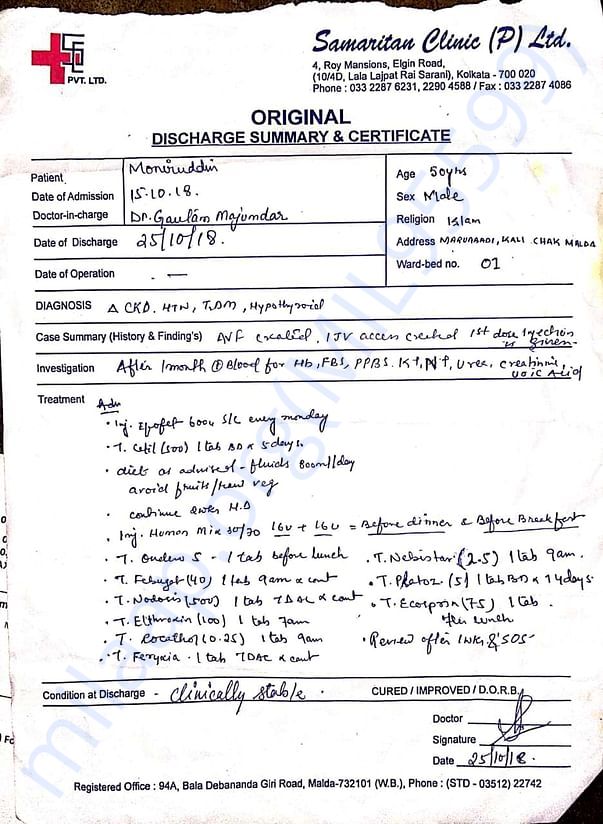 SCC
PVT. LTD.
Samaritan Clinic (P) Ltd.
4, Roy Mansions, Elgin Road,
(10/4D, Lala Lajpat Rai Sarani), Kolkata - 700 020
Phone : 033 2287 6231, 2290 4588 / Fax : 033 2287 4086
ORIGINAL
DISCHARGE SUMMARY & CERTIFICATE
Patient Moniruddin
Date of Admission 15.10.18.
Doctor-in-charge Dr. Gautam Majumdar
Date of Discharge 25/10/18.
Date of Operation . —
Age 50yrs
Sex Male
Religion Islam
Address KALI CHAK MALDA
Ward-bed no. 01
DIAGNOSIS Δ CKD. HTN, T2DM, Hypothyroid
Case Summary (History & Finding's) AVF created. IJV access created 1st dose Injection is given.
Investigation After 1 month Blood for Hb, FBS, PPBS. K+, Na+, Urea, Creatinine, Uric Acid
Treatment Adv
• Inj. Epofet 6000 S/C every monday
• T. Cetil (500) 1 tab BD x 5 days.
• diet as advised - fluids 800ml/day
avoid fruits/raw veg
• continue 2wkly H.D
• Inj. Human Mix 30/70 16U + 16U = Before dinner & Before Breakfast
• T. Ondero 5 - 1 tab before lunch
• T. Febuget (40) 1 tab 9am x cont
• T. Nodosis (500) 1 tab TDAC x cont
• T. Elthroxin (100) 1 tab 7am
• T. Rocaltrol (0.25) 1 tab 9am
• T. 1 tab TDAC x cont
• T. Nebistar (2.5) 1 tab 9am.
• T. (5) 1 tab BD x 14 days.
• T. Ecosprin (75) 1 tab.
after lunch
• Review after 1wk & 'SOS'
Condition at Discharge - Clinically stable.
CURED / IMPROVED / D.O.R.B.
Doctor
Signature
Date 25/10/18.
Registered Office : 94A, Bala Debananda Giri Road, Malda-732101 (W.B.), Phone : (STD - 03512) 22742